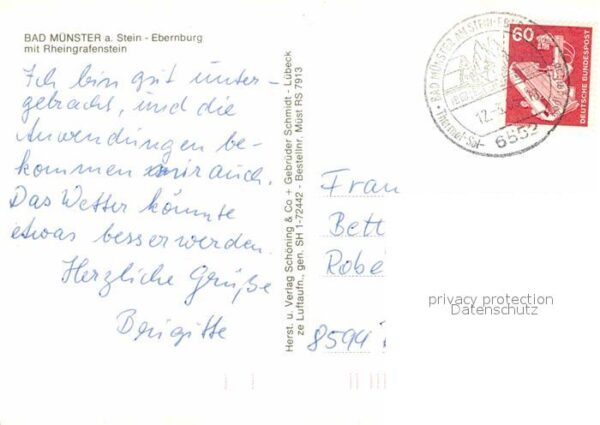 BAD MÜNSTER a. Stein - Ebernburg
mit Rheingrafenstein
Ich bin gut unter-
gebracht, und die
Anwendungen be-
kommen mir auch.
Das Wetter könnte
etwas besser werden.
Herzliche Grüße
Brigitte
Herst. u. Verlag Schöning & Co + Gebrüder Schmidt - Lübeck
ze Luftaufn., gen. SH 1-72442 - Bestellnr. Müst RS 7913
BAD MÜNSTER AM STEIN-
Thermal-Sol-
12.
60
DEUTSCHE BUNDESPOST
Frau
Bett
Robe
8594
privacy protection
Datenschutz